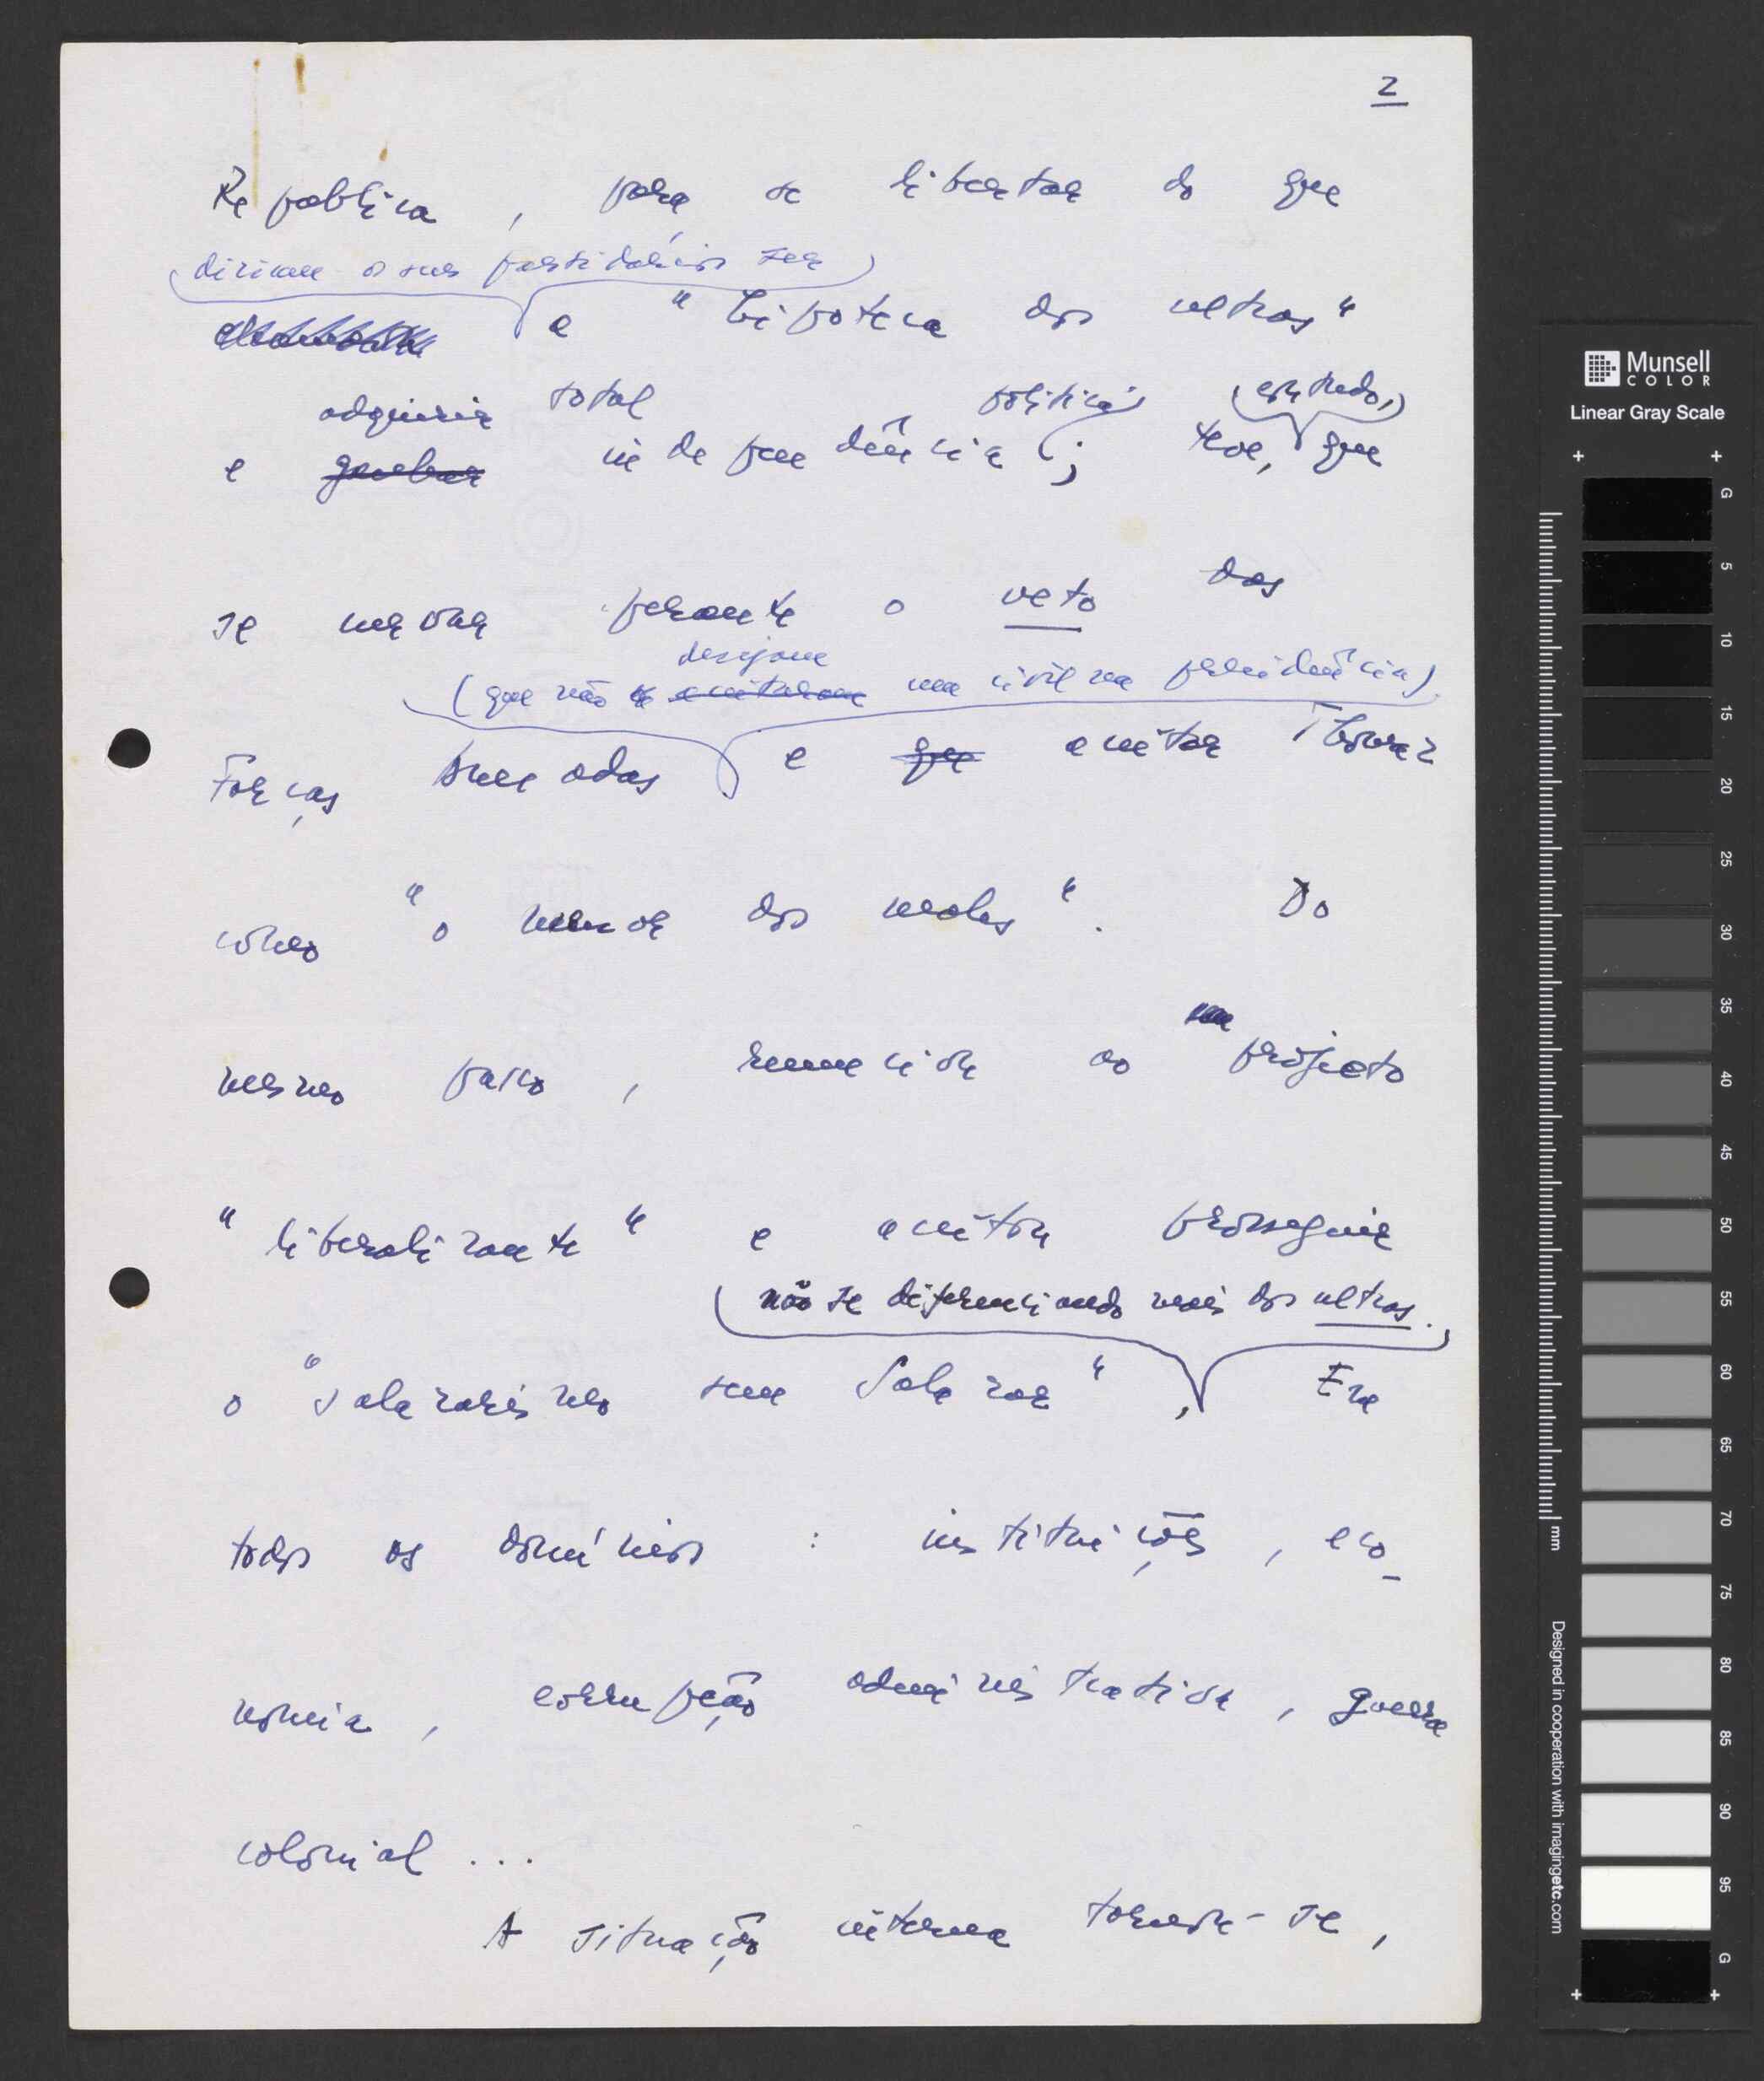 2
República, para se libertar do que
diziam os seus partidários ser
a "hipoteca dos ultras"
adquirir total política (contudo,)
e ganhar independência; teve, que
se curvar perante o veto das
desejam
(que não aceitavam um civil na presidência)
Forças Armadas e que aceitar Thomaz
como "o menor dos males". Do
mesmo passo, renunciou ao projecto
"liberalizante" e aceitou prosseguir
não se diferenciando mais dos ultras.
o "salazarismo sem Salazar", Em
todos os domínios: instituições, eco-
nomia, corrupção administrativa, guerra
colonial...
A situação interna tornou-se,
Munsell
COLOR
Linear Gray Scale
G
5
10
15
20
25
30
35
40
45
50
55
60
65
70
75
80
85
90
95
G
mm
Designed in cooperation with imagingetc.com